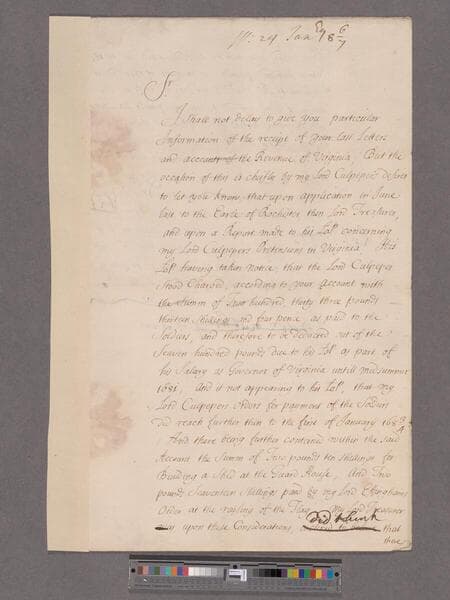 24 Jan 168 6/7
Sr
I shall not delay to give you particular
Information of the receipt of your last Letters
and account of the Revenue of Virginia, But the
occasion of this is chiefly by my Lord Culpepers desire
to let you know, that upon application in June
last to the Earle of Rochester then Lord Treasurer,
and upon a Report made to his Lop. concerning
my Lord Culpepers Pretensions in Virginia. His
Lop. having taken notice, that the Lord Culpeper
stood Charged, according to your Account with
the Summ of Two hundred, thirty three pounds
thirteen shillings and four pence as paid to the
Soldiers, and therefore to be deducted out of the
Seaven hundred pounds due to his Lop. as part of
his Salary as Governor of Virginia untill midsummer
1681. And it not appearing to his Lop. that my
Lord Culpepers Orders for payment of the Soldiers
did reach further then to the first of January 168
And there being further contained within the said
Account the Summ of Two pounds ten shillings for
Building a Shed at the Guard House, And Two
pounds Seaventeen shillings paid by my Lord Effinghams
Order at the raising of the Flag my Lord Treasurer
upon these Considerations did think that
there